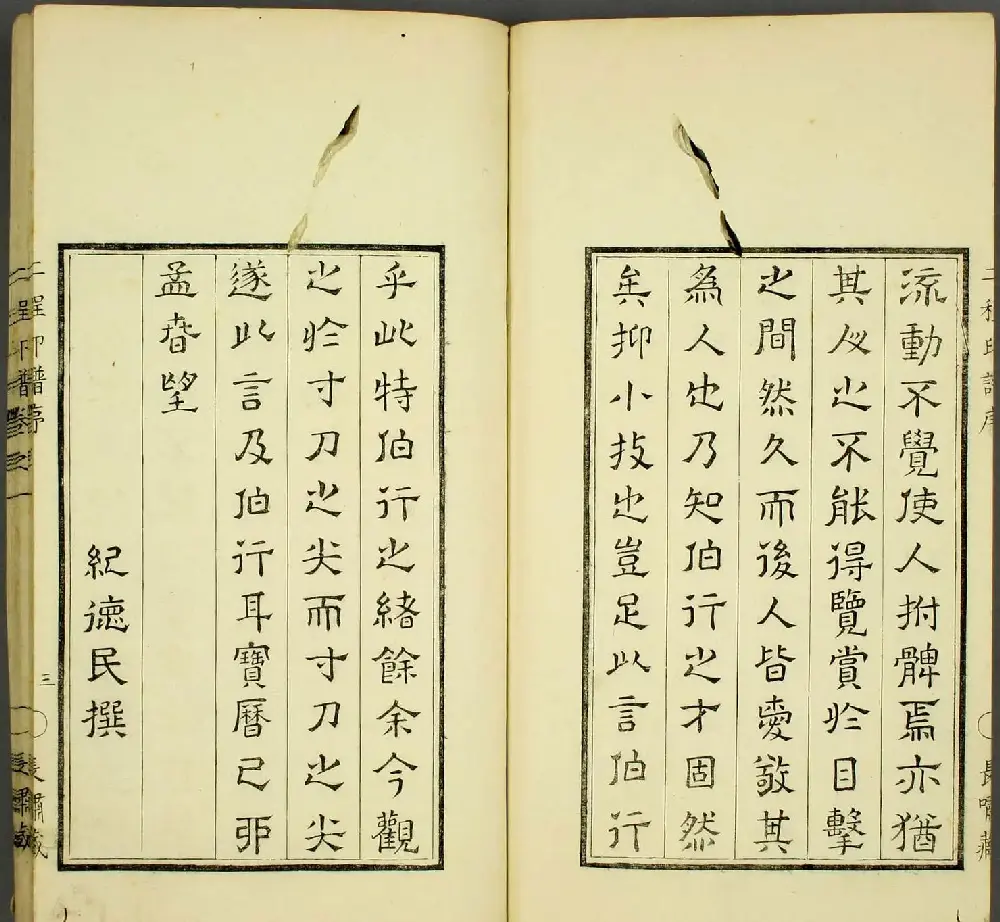 流動不覺使人拊髀焉亦猶
其仪之不能得覽賞於目擊
之間然久而後人皆愛敬其
為人也乃知伯行之才固然
矣抑小技也豈足以言伯行
乎此特伯行之緒餘余今觀
之於寸刀之尖而寸刀之尖
遂以言及伯行耳寶曆己卯
孟春望
紀德民撰
二程印譜序
三
長嘯藏